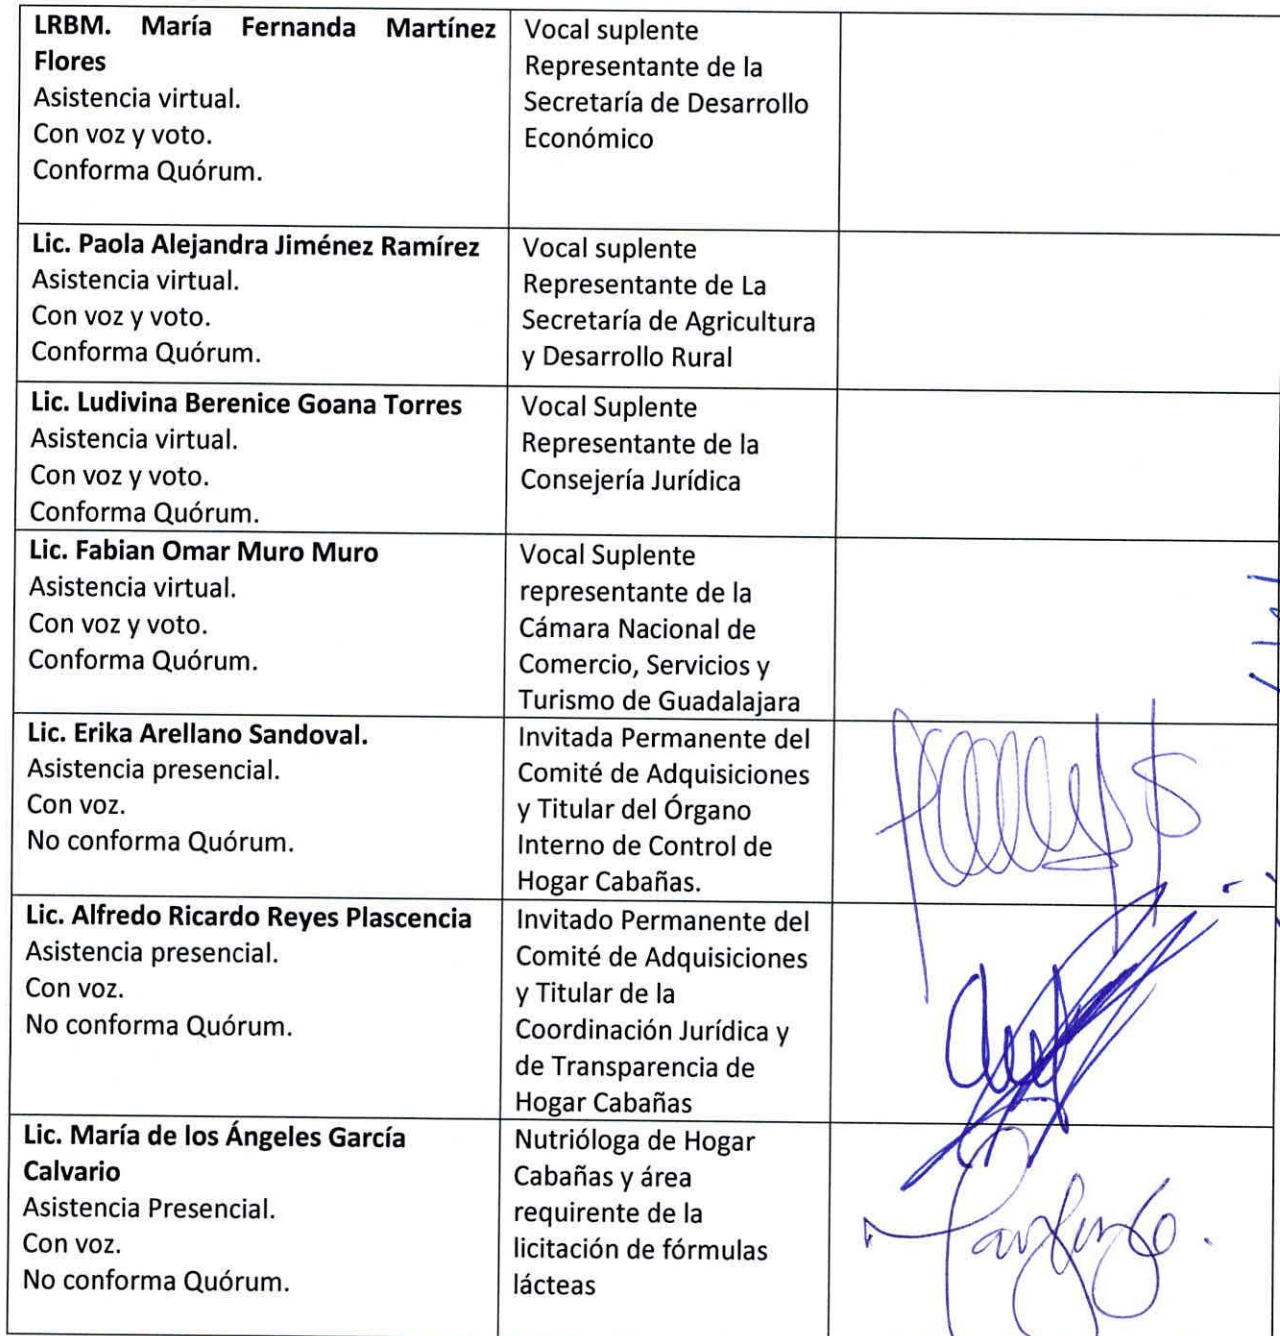 LRBM. María Fernanda Martínez
Flores
Asistencia virtual.
Con voz y voto.
Conforma Quórum.
Vocal suplente
Representante de la
Secretaría de Desarrollo
Económico
Lic. Paola Alejandra Jiménez Ramírez
Asistencia virtual.
Con voz y voto.
Conforma Quórum.
Vocal suplente
Representante de La
Secretaría de Agricultura
y Desarrollo Rural
Lic. Ludivina Berenice Goana Torres
Asistencia virtual.
Con voz y voto.
Conforma Quórum.
Vocal Suplente
Representante de la
Consejería Jurídica
Lic. Fabian Omar Muro Muro
Asistencia virtual.
Con voz y voto.
Conforma Quórum.
Vocal Suplente
representante de la
Cámara Nacional de
Comercio, Servicios y
Turismo de Guadalajara
Lic. Erika Arellano Sandoval.
Asistencia presencial.
Con voz.
No conforma Quórum.
Invitada Permanente del
Comité de Adquisiciones
y Titular del Órgano
Interno de Control de
Hogar Cabañas.
Lic. Alfredo Ricardo Reyes Plascencia
Asistencia presencial.
Con voz.
No conforma Quórum.
Invitado Permanente del
Comité de Adquisiciones
y Titular de la
Coordinación Jurídica y
de Transparencia de
Hogar Cabañas
Lic. María de los Ángeles García
Calvario
Asistencia Presencial.
Con voz.
No conforma Quórum.
Nutrióloga de Hogar
Cabañas y área
requirente de la
licitación de fórmulas
lácteas